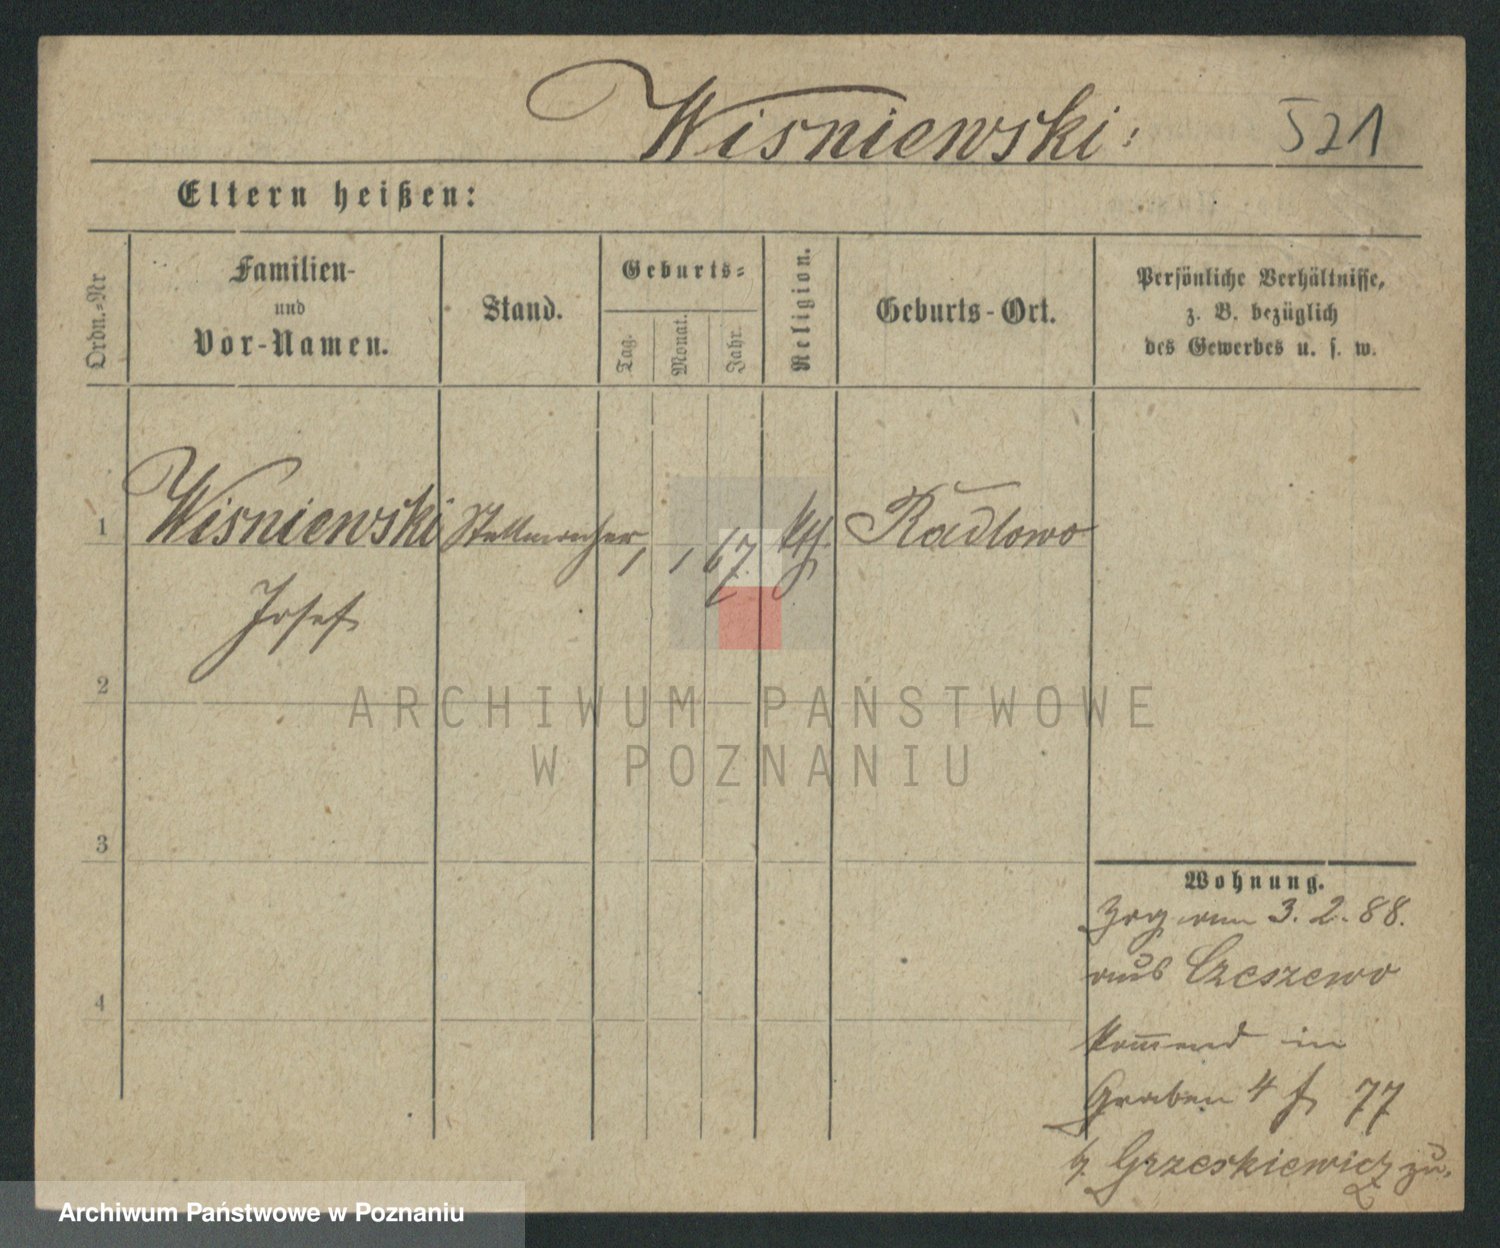 Wisniewski: 521
Eltern heißen:
Ordn.-Nr
Familien-
und
Vor-Namen.
Stand.
Geburts-
Tag.
Monat.
Jahr.
Religion.
Geburts-Ort.
Persönliche Verhältnisse,
z. B. bezüglich
des Gewerbes u. s. w.
1 Wisniewski Stellmacher, 67. kth. Radlowo
Josef
2
ARCHIWUM PAŃSTWOWE
W POZNANIU
3
Wohnung.
Zog am 3. 2. 88.
aus Czeszewo
kom̅end in
Graben 4 77
b. Grzeskiewicz zu.
4
Archiwum Państwowe w Poznaniu